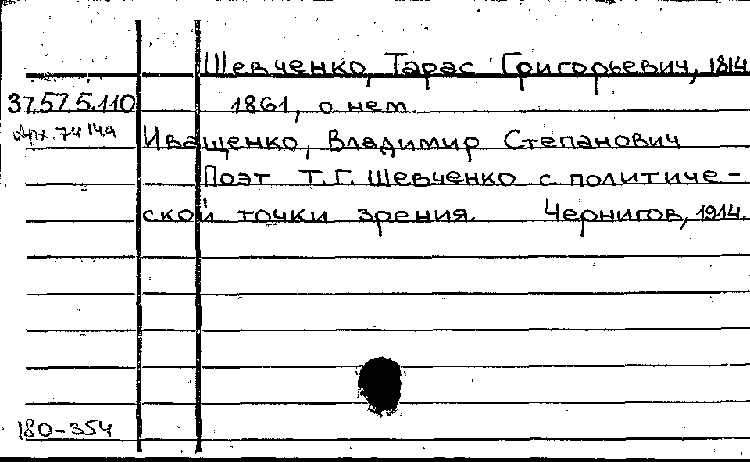 Шевченко, Тарас Григорьевич, 1814
37.57.5.110 1861, о нем.
Иващенко, Владимир Степанович
Поэт Т.Г. Шевченко с политиче-
ской точки зрения. Чернигов, 1914.
180-354